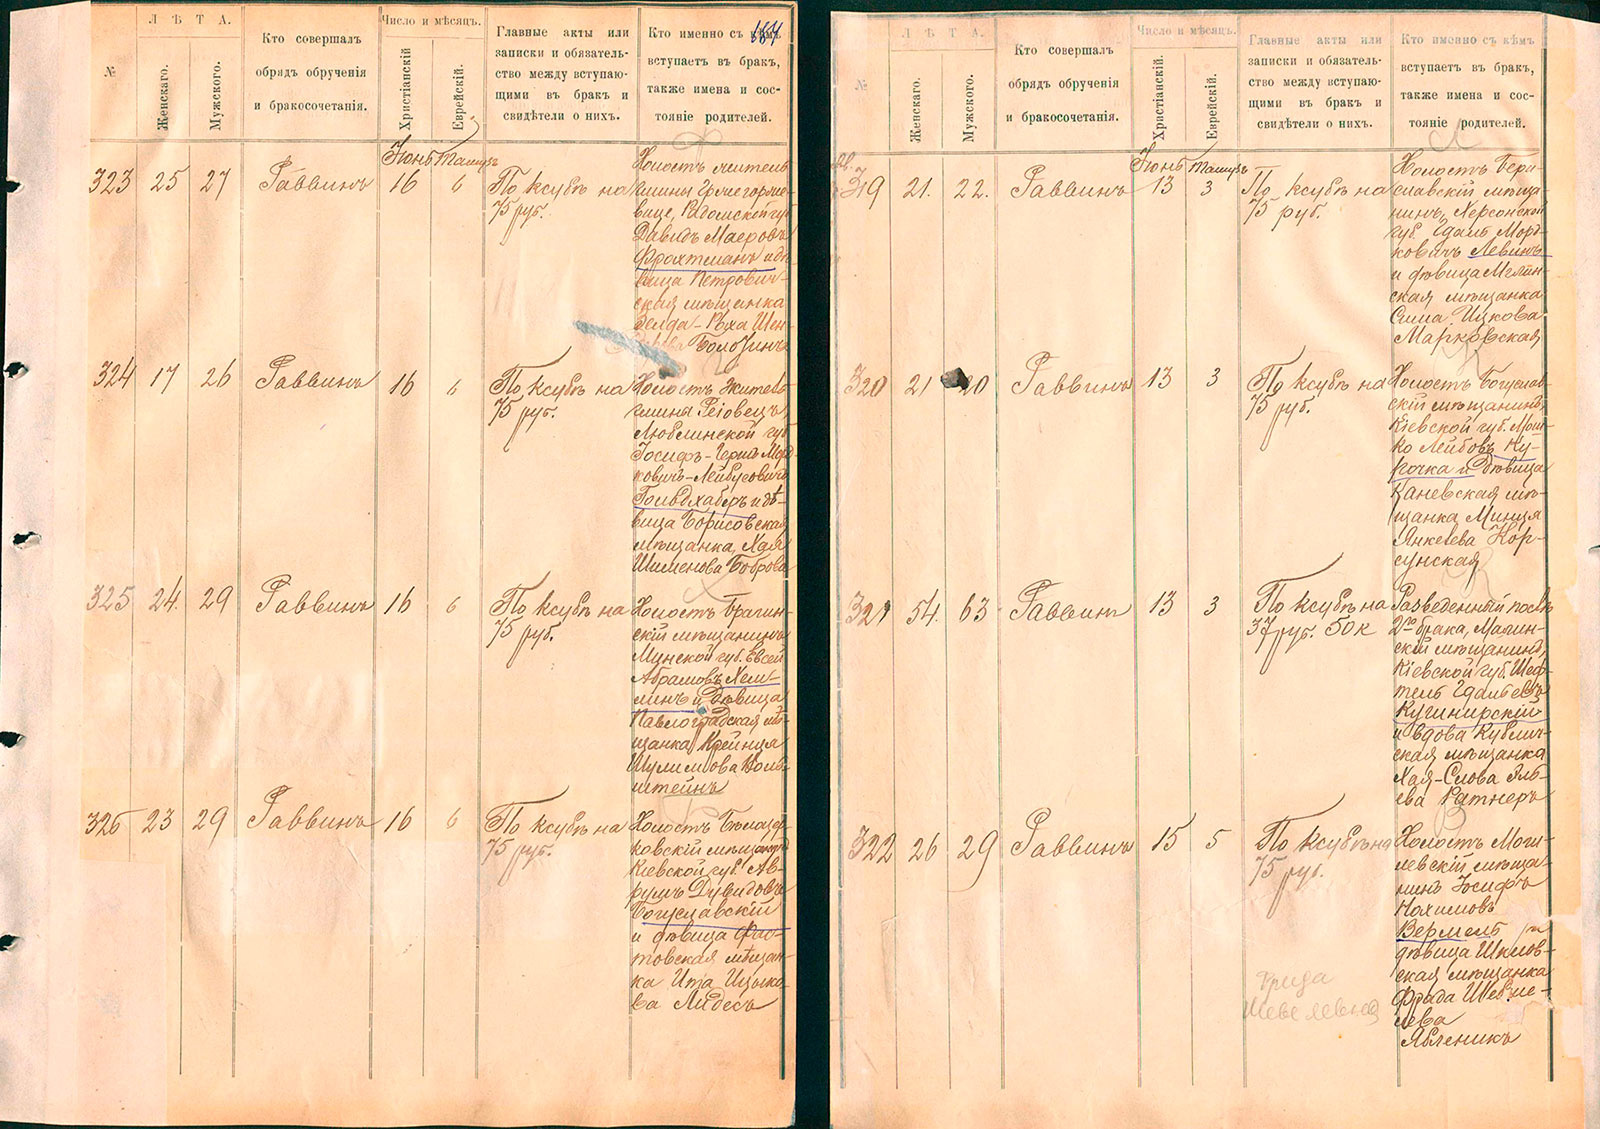 164
№
ЛѢТА.
Женскаго.
Мужского.
Кто совершалъ
обрядъ обрученія
и бракосочетанія.
Число и мѣсяцъ.
Христіанскій
Еврейскій.
Главные акты или
записки и обязатель-
ство между вступаю-
щими въ бракъ и
свидѣтели о нихъ.
Кто именно съ кѣмъ
вступаетъ въ бракъ,
также имена и сос-
тояніе родителей.
Іюнь Тамузъ
323 25 27 Раввинъ 16 6
По ксубѣ на
75 руб.
Холостъ житель
вице, Радомской губ.
Давидъ Маеровъ
Фрохтманъ и дѣ-
вица Петрович-
ская мѣщанка
Зелда-Роха Шен-
324 17 26 Раввинъ 16 6
По ксубѣ на
75 руб.
Холостъ житель
гмины Реіовецъ
Люблинской губ.
Іосифъ-Гершъ Морд-
ковичъ-Лейбусовичъ
Гольдхаберъ и дѣ-
вица Борисовская
мѣщанка, Хая
Шименова Боброва
325 24. 29 Раввинъ 16 6
По ксубѣ на
75 руб.
Холостъ Брагин-
скій мѣщанинъ
Минской губ. Евсей
Абрамовъ Хель-
минъ и дѣвица
Павлоградская мѣ-
щанка Крейнця
Шулимова Холь-
штейнъ
326 23 29 Раввинъ 16 6
По ксубѣ на
75 руб.
Холостъ Бѣлоцер-
ковскій мѣщанинъ
Кіевской губ. Ав-
румъ Дувидовъ
Богуславскій
и дѣвица Фас-
товская мѣщан-
ка Ита Ицько-
ва Лидесъ
№
ЛѢТА.
Женскаго.
Мужского.
Кто совершалъ
обрядъ обрученія
и бракосочетанія.
Число и мѣсяцъ.
Христіанскій.
Еврейскій.
Главные акты или
записки и обязатель-
ство между вступаю-
щими въ бракъ и
свидѣтели о нихъ.
Кто именно съ кѣмъ
вступаетъ въ бракъ,
также имена и сос-
тояніе родителей.
Іюнь Тамузъ
319 21. 22. Раввинъ 13 3
По ксубѣ на
75 руб.
Холостъ Бери-
славскій мѣща-
нинъ, Херсонской
губ. Гдаль Морд-
ковичъ Левинъ
и дѣвица Мглин-
ская мѣщанка
Сима Ицкова
Марковская
320 21 20 Раввинъ 13 3
По ксубѣ на
75 руб.
Холостъ Богуслав-
скій мѣщанинъ,
Кіевской губ. Мош-
ко Лейбовъ Ку-
рочка и дѣвица
Каневская мѣ-
щанка Минця
Янкелева Кор-
сунская
321 54. 63 Раввинъ 13 3
По ксубѣ на
37 руб. 50 к
Разведенный послѣ
2го брака,
скій мѣщанинъ,
Кіевской губ. Шеф-
тель Гдальевъ
Кугинирскій
и вдова Кублич-
ская мѣщанка
Хая-Слова Эль-
ева Ратнеръ
322 26 29 Раввинъ 15 5
По ксубѣ на
75 руб.
Холостъ Моги-
левскій мѣща-
нинъ Іосифъ
Нохимовъ
Вермель и
дѣвица Шклов-
ская мѣщанка
Фрада Шевше-
лева
Явленикъ
Фрида
Шевелевна